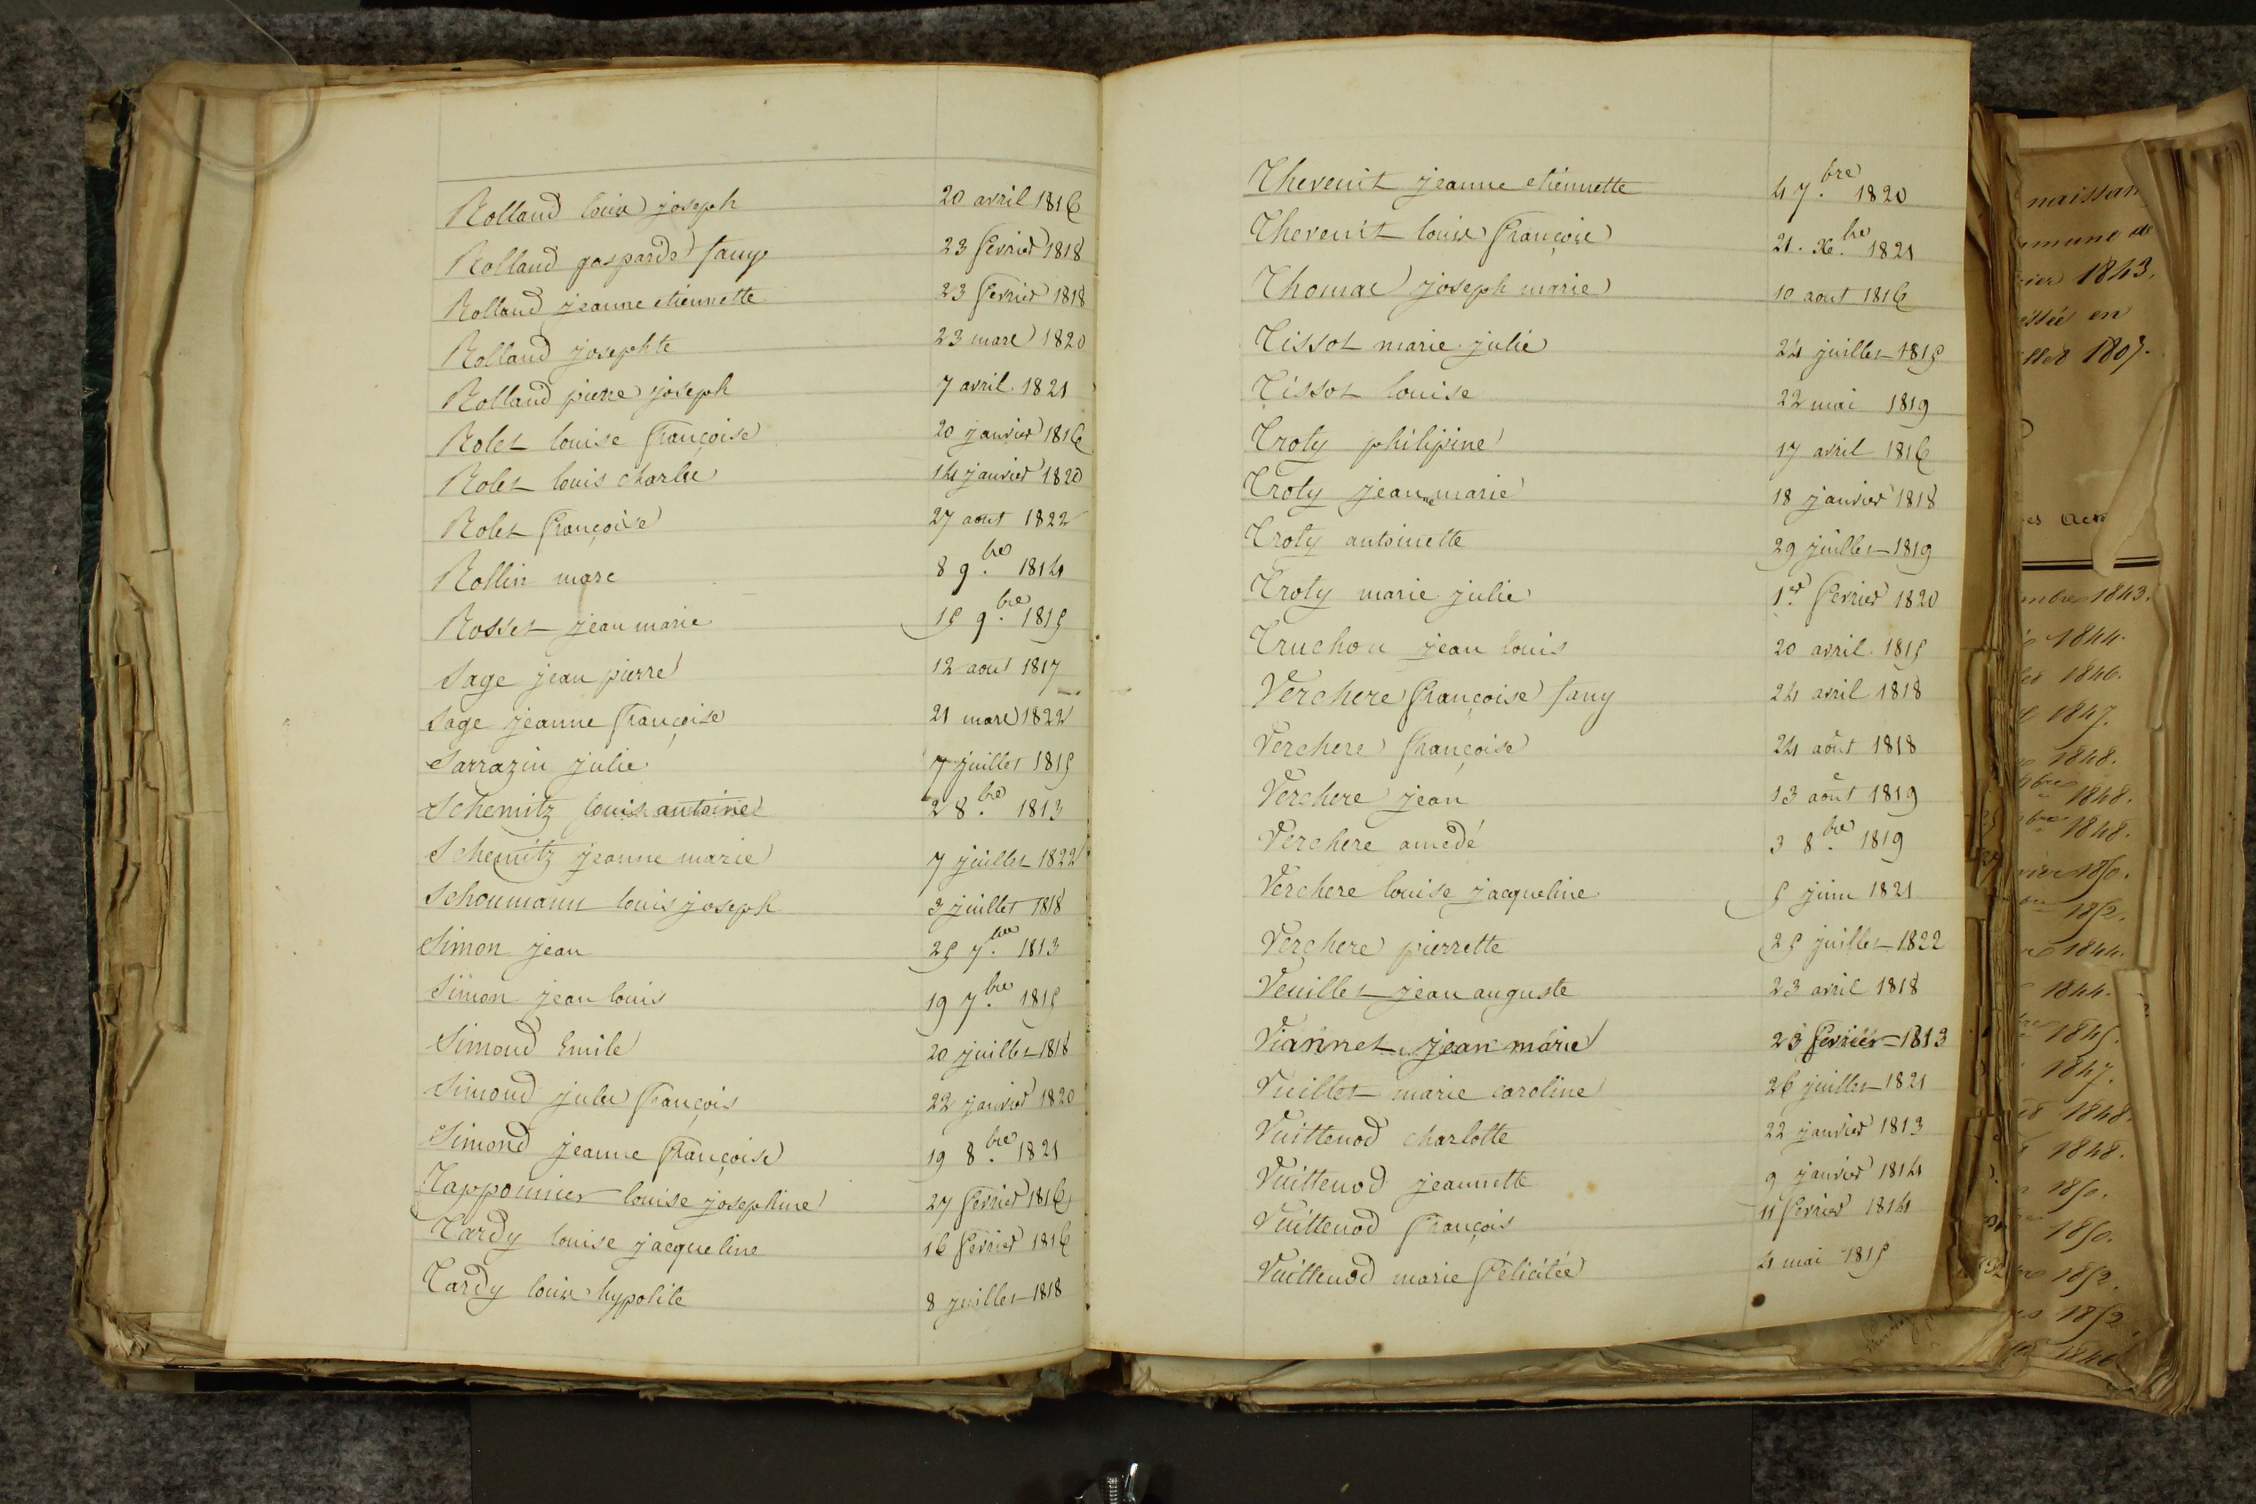 Rolland louis joseph 20 avril 1816
Rolland gasparde fany 23 fevrier 1818
Rolland jeanne etiennette 23 fevrier 1818
Rolland josephte 23 mars 1820
Rolland pierre joseph 7 avril 1821
Rolet louise françoise 20 janvier 1816
Rolet louis charles 14 janvier 1820
Rolet françoise 27 aout 1822
Rollin marc 8 9.bre 1814
Rosset jean marie 15 9.bre 1815
Sage jean pierre 12 aout 1817
Sage jeanne françoise 21 mars 1822
Sarrazin julie 7 juillet 1815
Schemitz louis antoine 28.bre 1813
Schemitz jeanne marie 7 juillet 1822
Schoumann louis joseph 3 juillet 1818
Simon jean 25 7.bre 1813
Simon jean louis 19 7.bre 1815
Simond Emile 20 juillet 1818
Simond jules françois 22 janvier 1820
Simond jeanne françoise 19 8.bre 1821
Tapponnier louise josephine 27 fevrier 1816
Tardy louise jacqueline 16 fevrier 1816
Tardy louis hypolite 8 juillet 1818
Thevenit jeanne etiennette 4 7.bre 1820
Thevenit louise françoise 21. X.bre 1821
Thomas joseph marie 10 aout 1816
Tissot marie julie 24 juillet 1815
Tissot louise 22 mai 1819
Troty philipine 17 avril 1816
Troty jeanne marie 18 janvier 1818
Troty antoinette 29 juillet 1819
Troty marie julie 1.er fevrier 1820
Truchon jean louis 20 avril 1815
Verchere françoise fany 24 avril 1818
Verchere françoise 24 août 1818
Verchere jean 13 août 1819
Verchere amedé 3 8.bre 1819
Verchere louise jacqueline 5 juin 1821
Verchere pierrette 25 juillet 1822
Veuillet jean auguste 23 avril 1818
Viannet jean marie 23 fevrier 1813
Vuillet marie caroline 26 juillet 1821
Vuittenod charlotte 22 janvier 1813
Vuittenod jeannette 9 janvier 1814
Vuittenod françois 11 fevrier 1814
Vuittenod marie felicitée 4 mai 1815
1843.
en
1807.
1843.
1844.
1846.
1847.
1848.
1848.
1848.
1850.
1852.
1844.
1844.
1845.
1847.
1848.
1848.
1850.
1850.
1852.
1852.